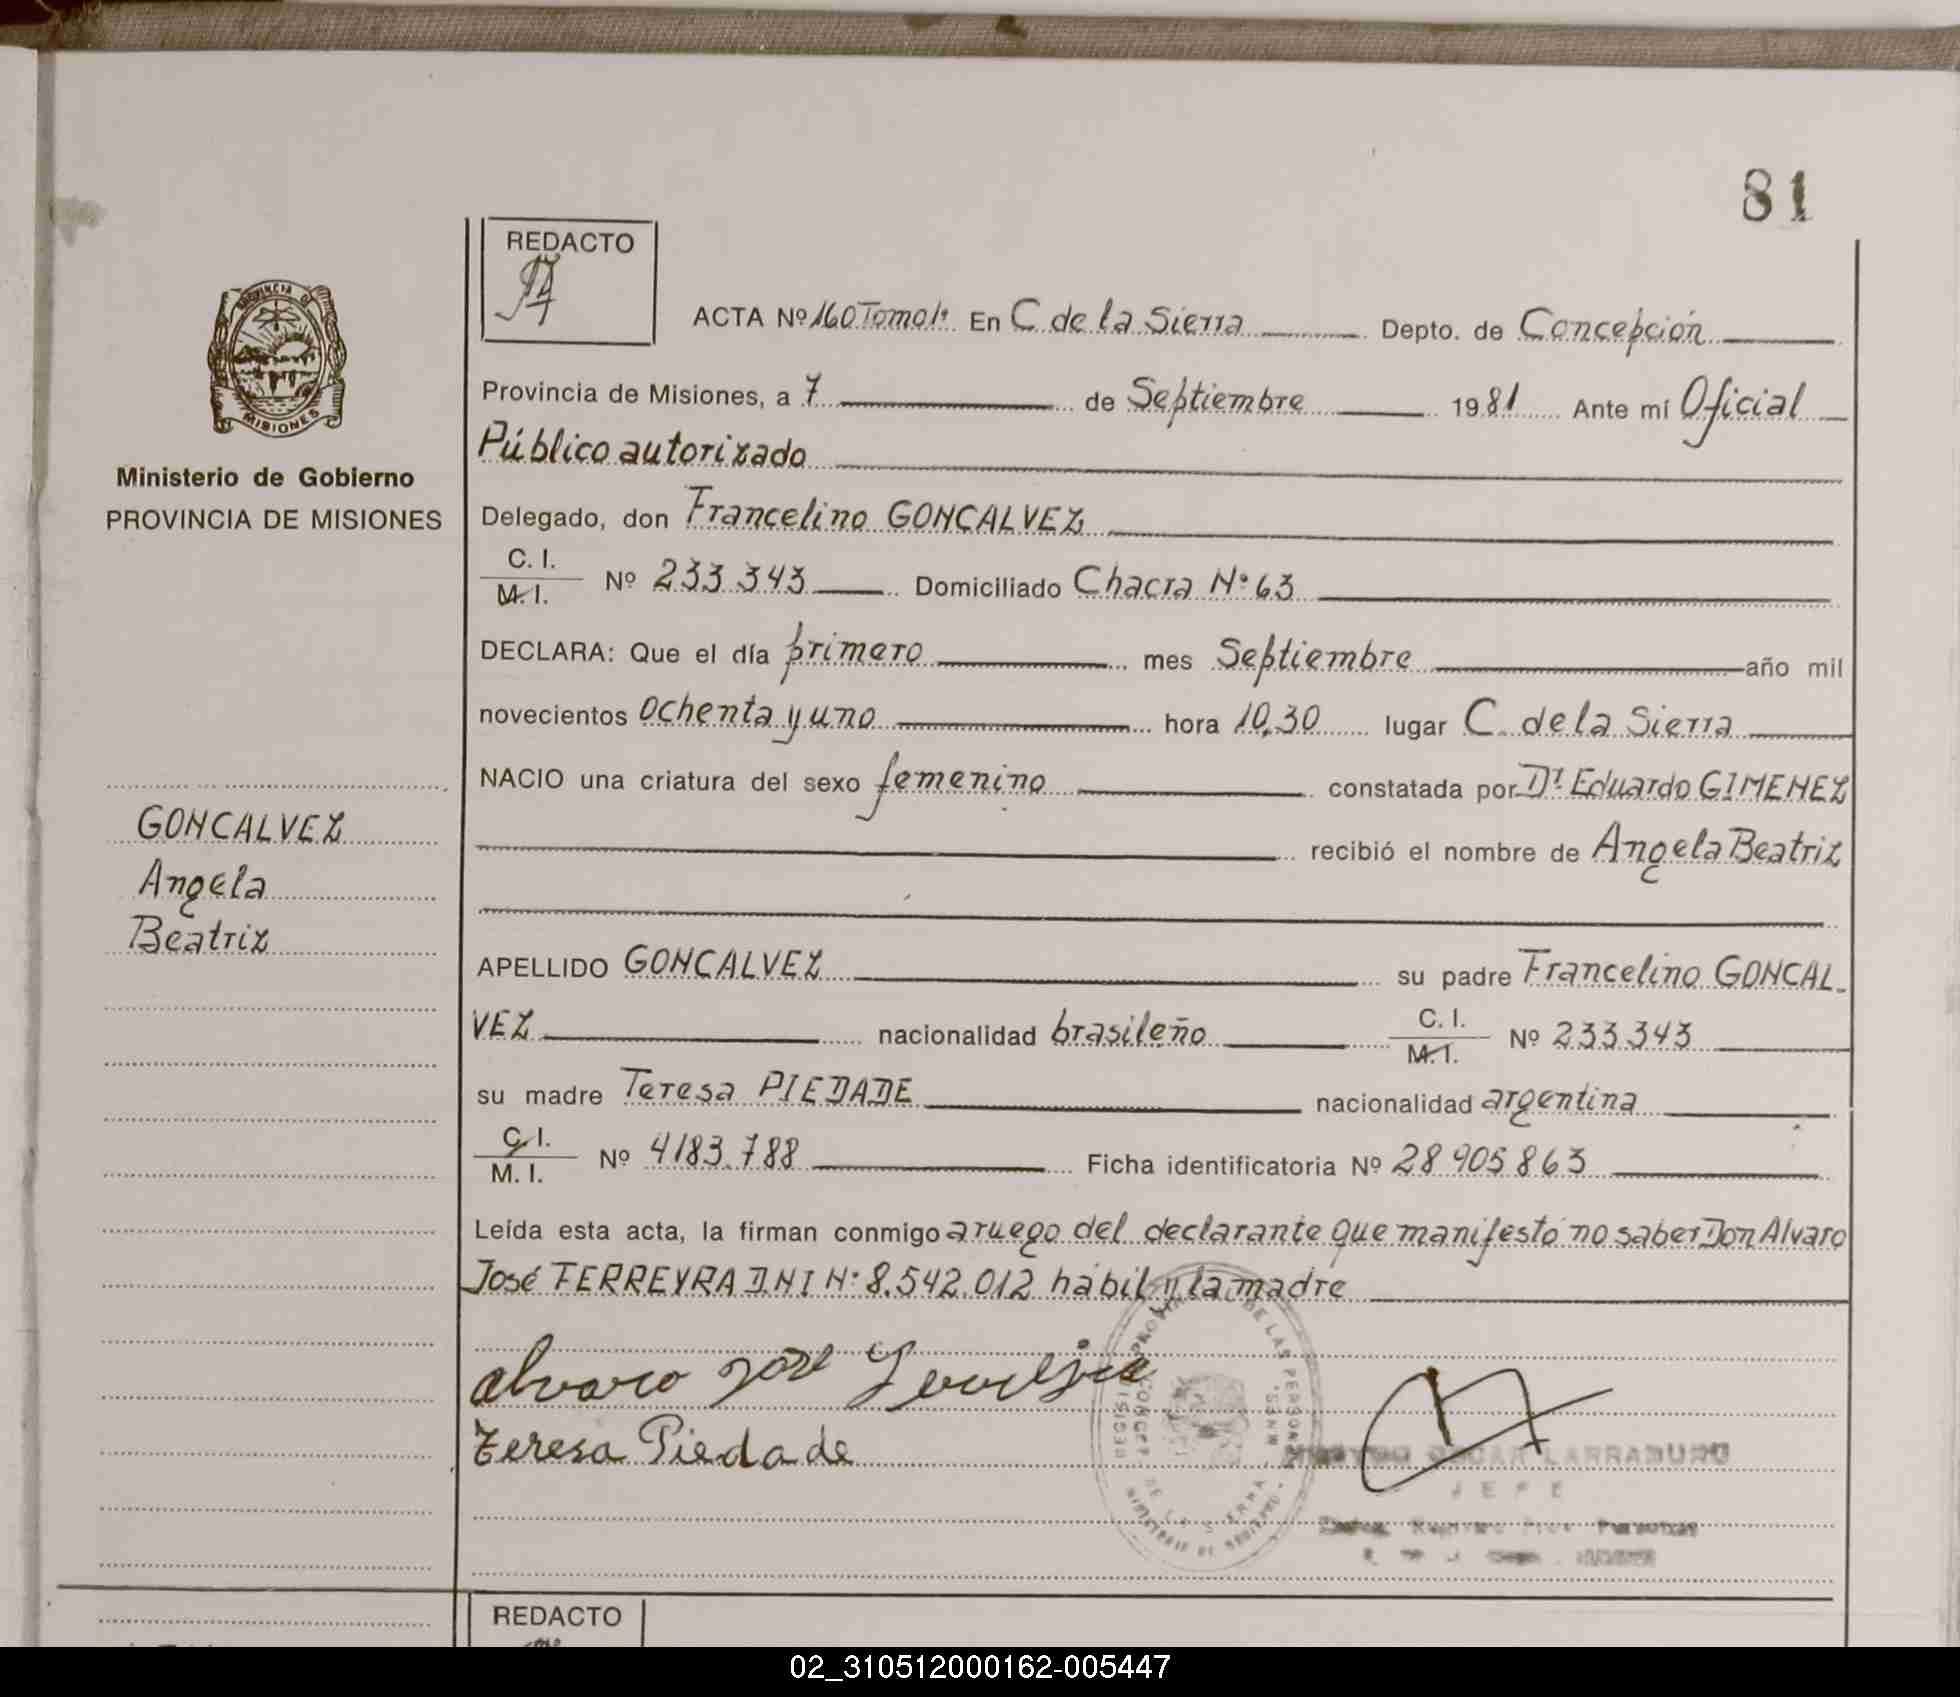 81
REDACTO
ACTA Nº 160 Tomo 1º En C. de la Sierra Depto. de Concepción
Provincia de Misiones, a 7 de Septiembre 1981 Ante mí Oficial
Público autorizado
PROVINCIA DE
MISIONES
Ministerio de Gobierno
PROVINCIA DE MISIONES
Delegado, don Francelino GONCALVEZ
C. I.
M. I. Nº 233.343 Domiciliado Chacra Nº 63
DECLARA: Que el día primero mes Septiembre año mil
novecientos ochenta y uno hora 10,30 lugar C. de la Sierra
NACIO una criatura del sexo femenino constatada por Dr. Eduardo GIMENEZ
recibió el nombre de Angela Beatriz
GONCALVEZ
Angela
Beatriz
APELLIDO GONCALVEZ su padre Francelino GONCAL-
VEZ nacionalidad brasileño C. I.
M. I. Nº 233.343
su madre Teresa PIEDADE nacionalidad argentina
C. I.
M. I. Nº 4183.788 Ficha identificatoria Nº 28905863
Leída esta acta, la firman conmigo a ruego del declarante que manifestó no saber Don Alvaro
José FERREYRA D.N.I Nº 8.542.012 hábil y la madre
Alvaro José Ferreyra
Teresa Piedade
OSCAR LARRABURU
JEFE
REDACTO
02_310512000162-005447